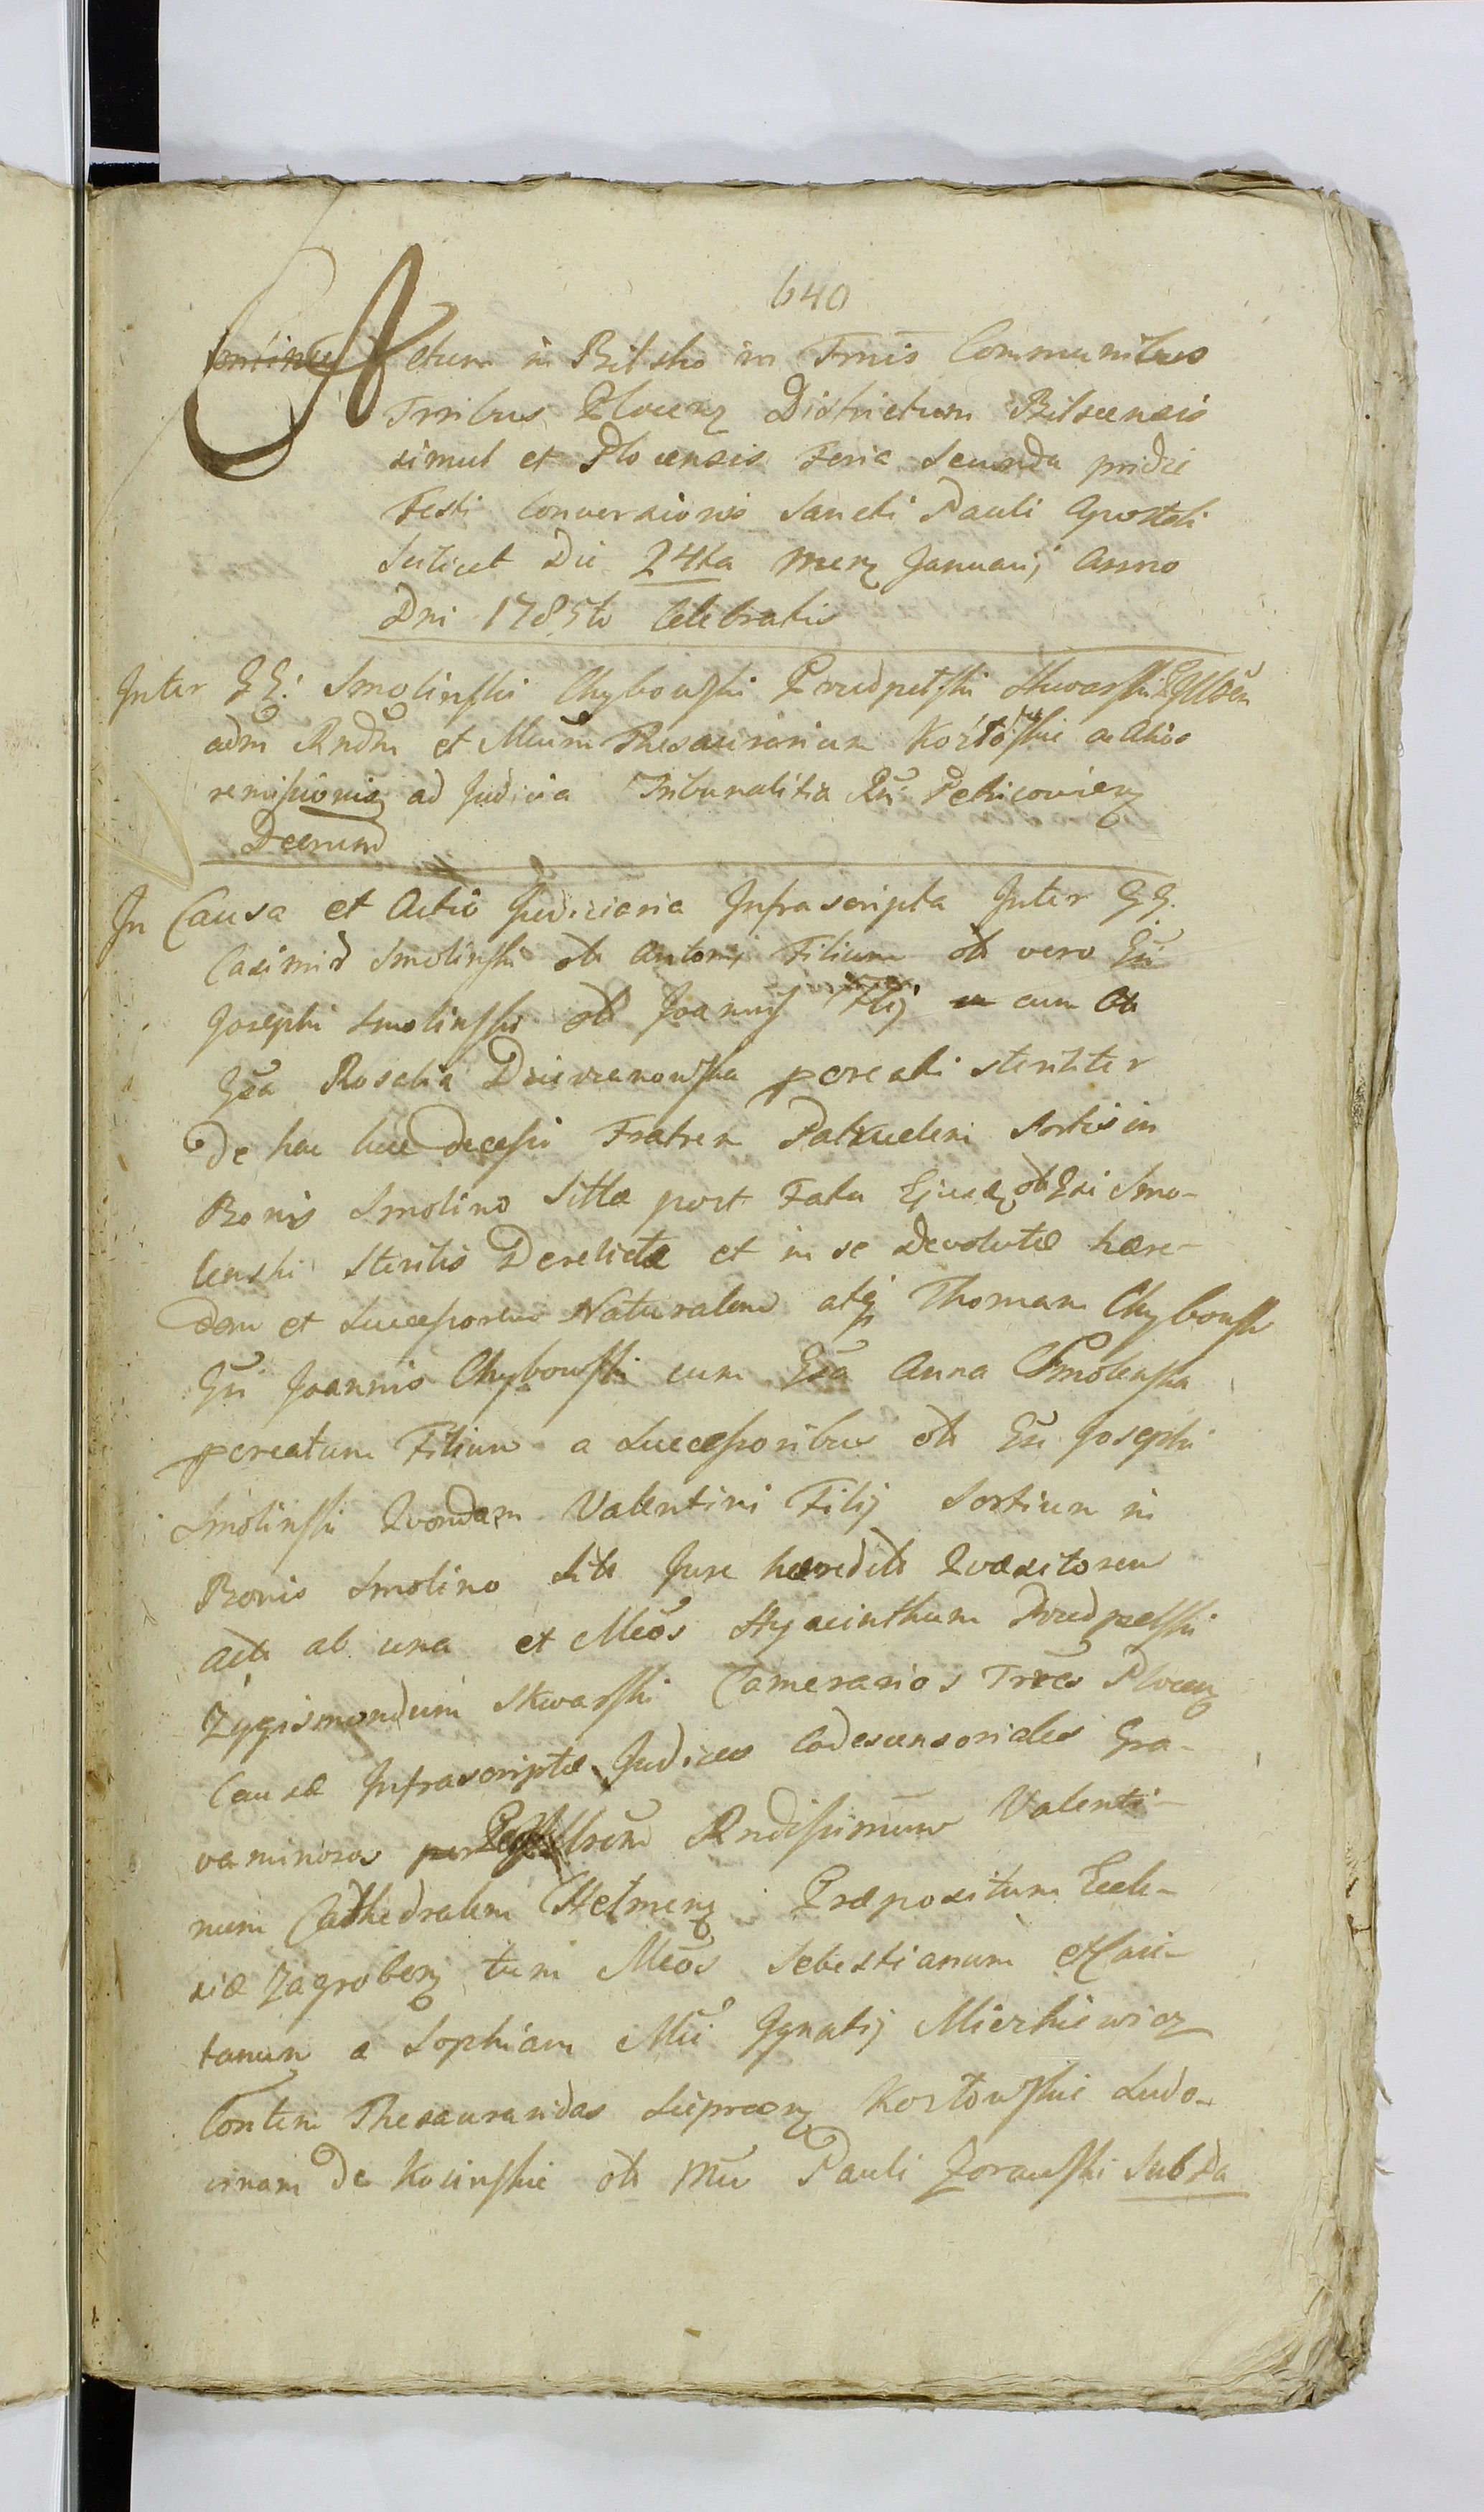 640
Actum in Bilsko in Tmis Communibus
Trribus Plocen Districtum Bilscensis
simul et Plocensis Feria Secunda pridie
Festi Conversionis Sancti Pauli Apostoli
Scilicet Die 24ta Men Januarij Anno
Dni 1785to Celebratis
Inter GG: Smolinski Chybowski Prudpelski Skwarski
adm Rndm et Mcum Thesaurarium Kozłowskie ac Alios
remissionis ad Judicia Tribunalitia Petricovien
Decrum
In Causa et Actio Judiciaria Infrascripta Inter GG.
Casimir Smolinski olt Antonij Filium olt vero Gsi
Josephi Smolinski olt Joannis Flij cum Olt
Gsa Rosalia Dzierzanowska pcreati steriliter
De hac luce Decessi Fratrem Patruelem Sortis in
Bonis Smolino Sittæ post Fata Ejusd olt Gsi Smo-
lenski Sterilis Derelictæ et in se Devolutæ hære-
dem et Successorem Naturalem atq Thomam Chybowski
Gsi Joannis Chybowski cum Gsa Anna Smolenska
pcreatum Filium a Successoribus olt Gsi Josephi
Smolinski Quondam Valentini Filij Sortium in
Bonis Smolino Sitt Jure hæredit Quæsitorem
Actt ab una et Mcos Hyacinthum Prudpelski
Zygismondum Skwarski Camerarios Trres Plocen
Causæ Infrascriptæ Judices Codescensoriales Gra-
vaminosos Rndissimum Valenti-
num Cathedralem Chelmen Præpositum Eccle-
siæ Zagroben tum Mcos Sebestianum et Cai-
tanum a Sophiam Mci Ignatij Mierkiewicz
Contem Thesauraridas Sieprecen Kozłowskie Ludo-
vinam De Kocinskie olt Mci Pauli Zorawski Subda